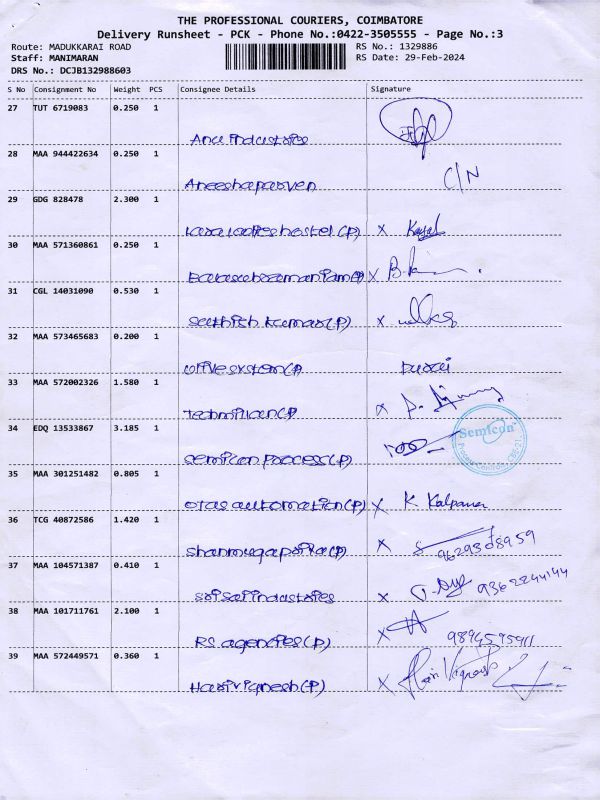 THE PROFESSIONAL COURIERS, COIMBATORE
Delivery Runsheet - PCK - Phone No.:0422-3505555 - Page No.:3
Route: MADUKKARAI ROAD RS No.: 1329886
Staff: MANIMARAN RS Date: 29-Feb-2024
DRS No.: DCJB132988603
S No Consignment No Weight PCS Consignee Details Signature
27 TUT 6719083 0.250 1
Anu industries
28 MAA 944422634 0.250 1
Aneeshaparven C/N
29 GDG 828478 2.300 1
ladies hostel (P) X Kayal
30 MAA 571360861 0.250 1
Balasubramaniam (P) X B.k
31 CGL 14031090 0.530 1
Sathish kumar (P) X
32 MAA 573465683 0.200 1
system (P) Durai
33 MAA 572002326 1.580 1
X
34 EDQ 13533867 3.185 1
semicon process (P) Semicon
35 MAA 301251482 0.805 1
automation (P) X K Kalpana
36 TCG 40872586 1.420 1
Shanmugapriya (P) X 9629308959
37 MAA 104571387 0.410 1
Sri sai industries X 9362244144
38 MAA 101711761 2.100 1
RS agencies (P) X 9894595911
39 MAA 572449571 0.360 1
Harivignesh (P) X Hari Vignesh